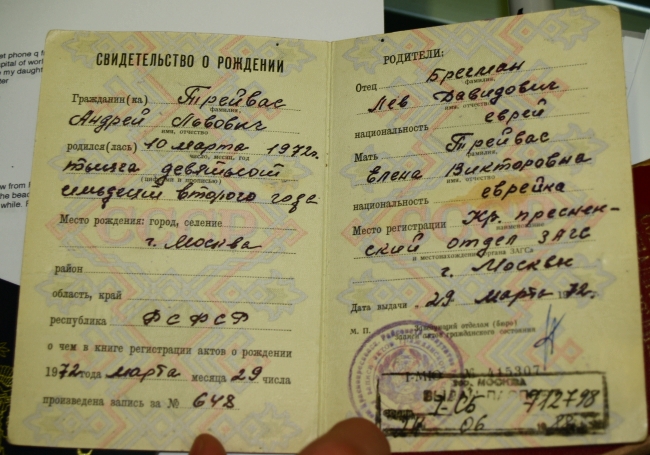 et phone
pital of wor
e my daught
ter
w from
the bea
while.
СВИДЕТЕЛЬСТВО О РОЖДЕНИИ
Гражданин(ка) Трейвас
фамилия,
Андрей Львович
имя, отчество
родился(лась) 10 марта 1972г.
число, месяц, год
тысяча девятьсот
(цифрами и прописью)
семьдесят второго года
Место рождения: город, селение
г. Москва
район
область, край
республика РСФСР
о чем в книге регистрации актов о рождении
1972 года марта месяца 29 числа
произведена запись за № 648
РОДИТЕЛИ:
Отец Брегман
фамилия,
Лев Давидович
имя, отчество
национальность еврей
Мать Трейвас
фамилия,
Елена Викторовна
имя, отчество
национальность еврейка
Место регистрации Кр. преснен-
наименование
ский отдел ЗАГС
и местонахождение органа ЗАГСа
г. Москвы
Дата выдачи 29 марта 1972.
М. П. Заведующий отделом (бюро)
записи актов гражданского состояния
№ 445307
гор. МОСКВА
I-СБ 712798
06